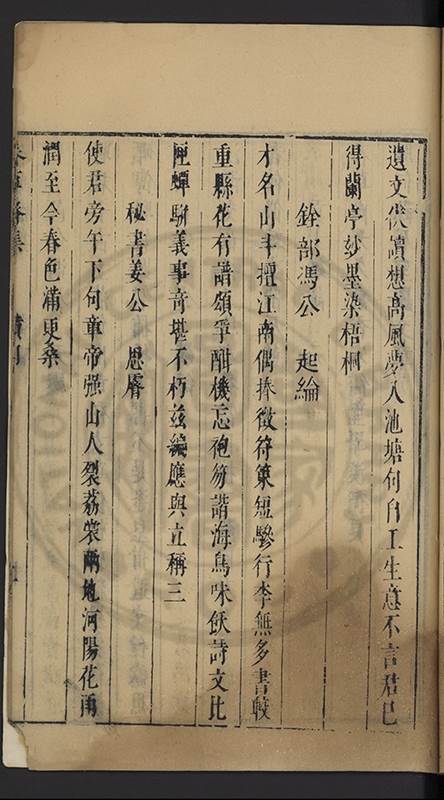 遺文伏讀想高風夢入池塘句自工生意不言君已
得蘭亭妙墨染梧桐
銓部馮公 起綸
才名山斗擅江南偶捧徵符策短驂行李無多書較
重縣花有譜頌爭酣機忘苑笏諧海鳥味飫詩文比
蟬騈義事奇堪不朽茲編應與立稱三
秘書姜公 思睿
使君旁午下句章帝强山人裂荔裳兩地河陽花雨
潤至今春色滿更桑
集